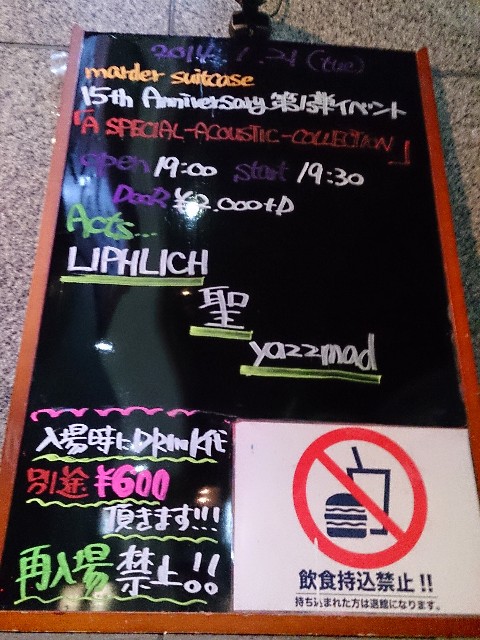 2014. 1. 21 (tue)
marder suitcase
15th Anniversary 第13弾イベント
「A SPECIAL-ACOUSTIC-COLLECTION」
open 19:00 start 19:30
DooR ¥2.000+D
Acts...
LIPHLICH
聖
yazzmad
入場時にDRINK代
別途¥600
頂きます!!!
再入場禁止!!
飲食持込禁止!!
持ち込まれた方は退館になります。